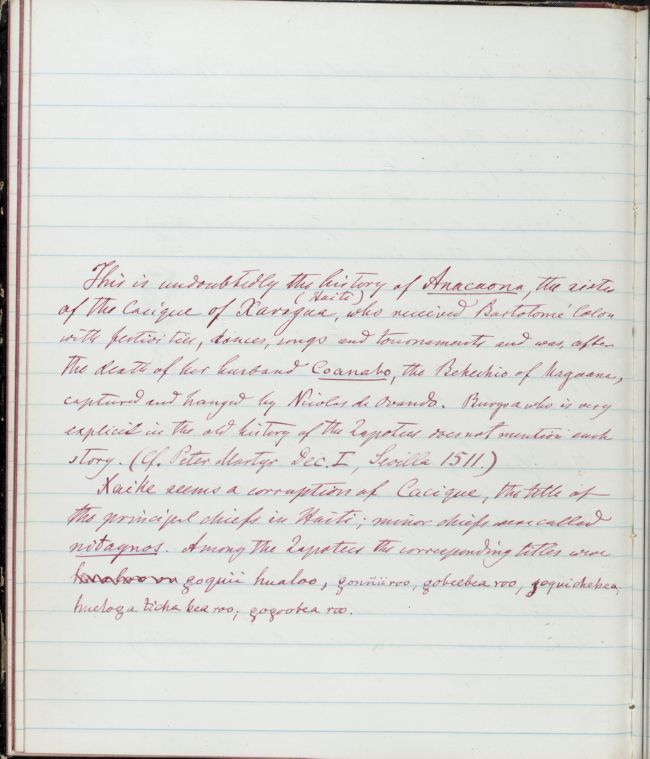 This is undoubtedly the history of Anacaona, the sister
(Haiti)
of the Cacique of Xaragua, who received Bartolomé Colon
with festivities, dances, songs and tournaments and was, after
the death of her husband Coanabo, the Behechio of Maguana,
captured and hanged by Nicolas de Ovando. Burgoa who is very
explicit in the old history of the Zapotecs does not mention such
story. (Cf. Peter Martyr Dec. I, Sevilla 1511.)
Xaike seems a corruption of Cacique, the title of
the principal chiefs in Haiti; minor chiefs were called
nitaynos. Among the Zapotecs the corresponding titles were
goquii hualao, gonñiiroo, gobeebea roo, goquichebea,
hueloga ticha bea roo, gogoobea roo.